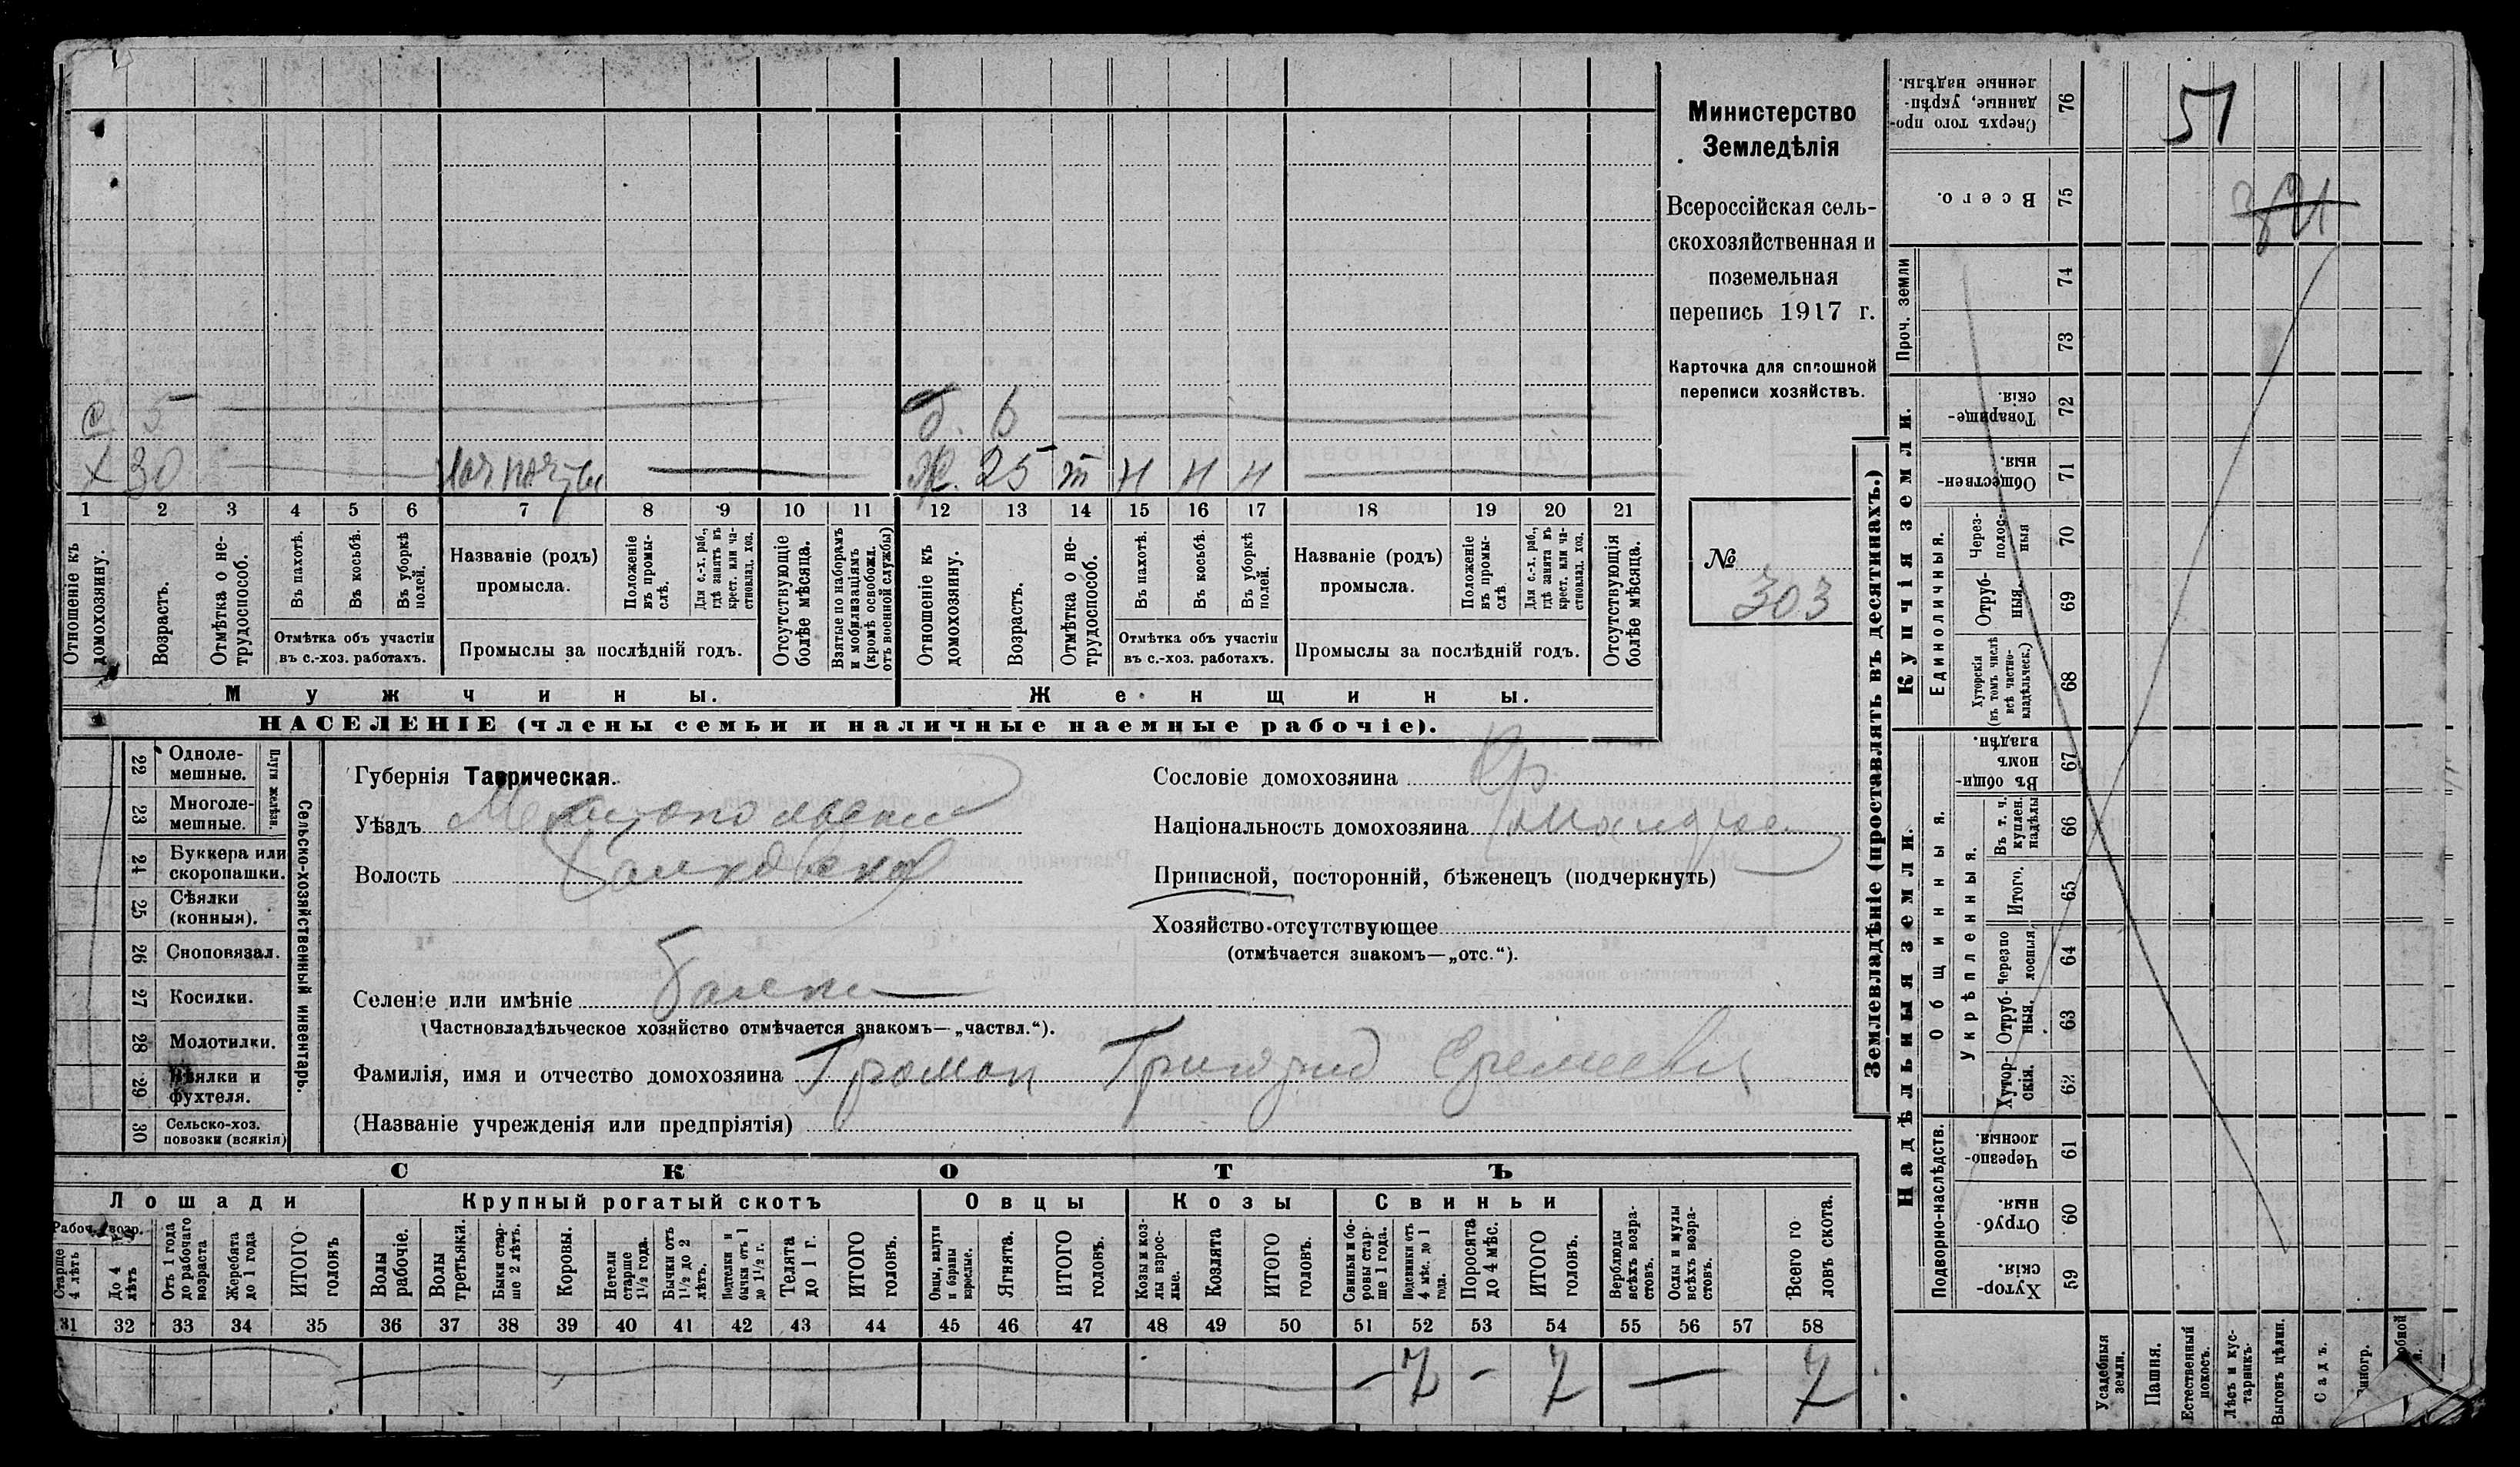 Министерство
Земледѣлія
Всероссійская сель-
скохозяйственная и
поземельная
перепись 1917 г.
Карточка для сплошной
переписи хозяйствъ.
№
303
с. 5
б. 6
х 30
ж. 25 т н н н
1 2 3 4 5 6 7 8 9 10 11 12 13 14 15 16 17 18 19 20 21
Отношеніе къ домохозяину.
Возрастъ.
Отмѣтка о не-трудоспособ.
Въ пахотѣ.
Въ косьбѣ.
Въ уборкѣ полей.
Отмѣтка объ участіи
въ с.-хоз. работахъ.
Названіе (родъ)
промысла.
Положеніе въ промы-слѣ.
Для с.-х. раб., гдѣ занятъ въ крест. или ча-стновлад. хоз.
Промыслы за послѣдній годъ.
Отсутствующіе болѣе мѣсяца.
Взятые по наборамъ и мобилизаціямъ (кромѣ освобожд. отъ военной службы)
Отношеніе къ домохозяину.
Возрастъ.
Отмѣтка о не-трудоспособ.
Въ пахотѣ.
Въ косьбѣ.
Въ уборкѣ полей.
Отмѣтка объ участіи
въ с.-хоз. работахъ.
Названіе (родъ)
промысла.
Положеніе въ промы-слѣ
Для с.-х. раб., гдѣ занятъ въ крест. или ча-стновлад. хоз.
Промыслы за послѣдній годъ.
Отсутствующія болѣе мѣсяца.
Мужчины.
Женщины.
НАСЕЛЕНІЕ (члены семьи и наличные наемные рабочіе).
22 Одноле-мешные.
23 Многоле-мешные.
Плуги желѣзн.
24 Буккера или скоропашки.
25 Сѣялки (конныя).
26 Сноповязал.
27 Косилки.
28 Молотилки.
29 Вѣялки и фухтеля.
30 Сельско-хоз. повозки (всякія)
Сельско-хозяйственный инвентарь.
Губернія Таврическая.
Уѣздъ Мелитопольский
Волость Балковская
Селеніе или имѣніе Балки
(Частновладѣльческое хозяйство отмѣчается знакомъ—„частвл.“).
Фамилія, имя и отчество домохозяина Громан Григорий Еремеевич
(Названіе учрежденія или предпріятія)
Сословіе домохозяина Кр.
Національность домохозяина
Приписной, посторонній, бѣженецъ (подчеркнуть)
Хозяйство отсутствующее
(отмѣчается знакомъ—„отс.“).
СКОТЪ
Лошади
Крупный рогатый скотъ
Овцы
Козы
Свиньи
Рабоч. возр.
Старше 4 лѣтъ
До 4 лѣтъ
Отъ 1 года до рабочаго возраста
Жеребята до 1 года
ИТОГО головъ
Волы рабочіе.
Волы третьяки.
Быки стар-ше 2 лѣтъ.
Коровы.
Нетели старше 1½ года.
Бычки отъ 1½ до 2 лѣтъ.
Подтелки и бычки отъ 1 до 1½ г.
Телята до 1 г.
ИТОГО головъ.
Овцы, валухи и бараны взрослые.
Ягнята.
ИТОГО головъ.
Козы и коз-лы взрос-лые.
Козлята
ИТОГО головъ.
Свиньи и бо-ровы стар-ше 1 года.
Подсвинки отъ 4 мѣс. до 1 года.
Поросята до 4 мѣс.
ИТОГО головъ.
Верблюды всѣхъ возра-стовъ.
Ослы и мулы всѣхъ возра-стовъ.
Всего го ловъ скота.
31 32 33 34 35 36 37 38 39 40 41 42 43 44 45 46 47 48 49 50 51 52 53 54 55 56 57 58
— 7 — 7 — 7
Землевладѣніе (проставлять въ десятинахъ.)
51
Сверхъ того про-данные, укрѣп-ленные надѣлы. 76
Всего. 75
Проч. земли
74
73
Купчія земли.
Товарище-скія. 72
Обществен-ныя. 71
Единоличныя.
Через-полос-ныя 70
Отруб-ныя. 69
Хуторскія (въ томъ числѣ всѣ частно-владѣльческ.) 68
Надѣльныя земли.
Общинныя.
Въ общи-номъ владѣн. 67
Укрѣпленныя.
Въ т. ч. куплен. надѣлы 66
Итого. 65
Черезпо лосныя 64
Отруб-ныя. 63
Хутор-скія. 62
Подворно-наслѣдств.
Черезпо-лосныя. 61
Отруб-ныя. 60
Хутор-скія. 59
Усадебныя земли.
Пашня.
Естественный покосъ.
Лѣсъ и кус-тарникъ.
Выгонъ цѣлин.
Садъ.